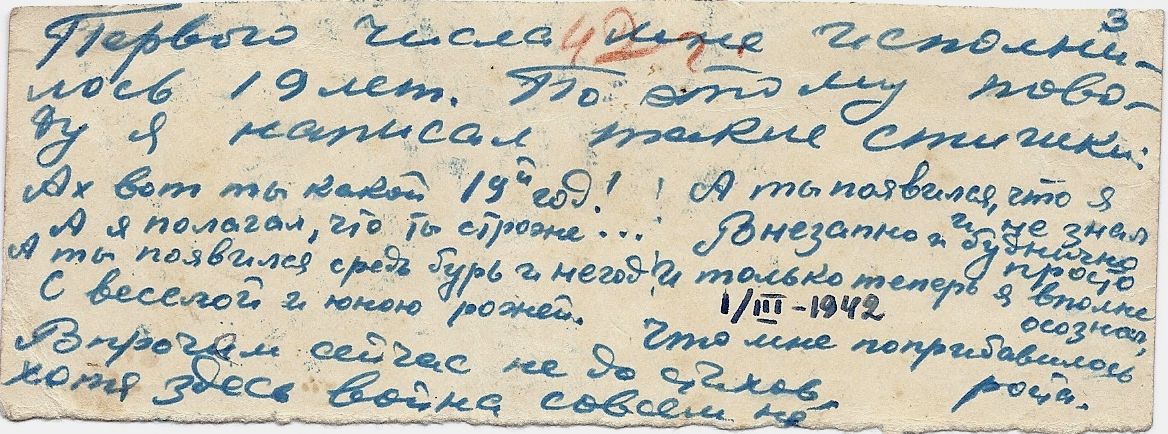 3
Первого числа мне исполни-
лось 19 лет. По этому пово-
ду я написал такие стишки:
Ах вот ты какой 19й год!
А я полагал, что ты строже...
А ты появился средь бурь и негод!
С веселой и юною рожей.
А ты появился, что я
и не знал
Внезапно и буднично
просто
И только теперь я вполне
осознал,
Что мне поприбавилось
роста.
1/III-1942
Впрочем сейчас не до стихов
хотя здесь война совсем не